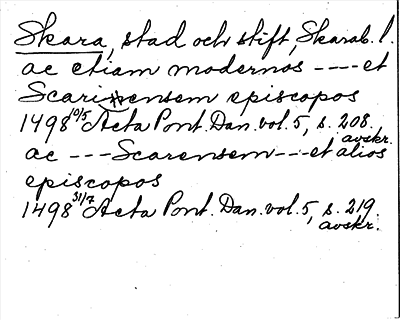 Skara, stad och stift, Skarab. l.
ac etiam modernos ---- et
Scarinensem episcopos
1498 10/5 Acta Pont. Dan. vol. 5, s. 208.
avskr.
ac --- Scarensem --- et alios
episcopos
1498 31/7 Acta Pont. Dan. vol. 5, s. 219.
avskr.